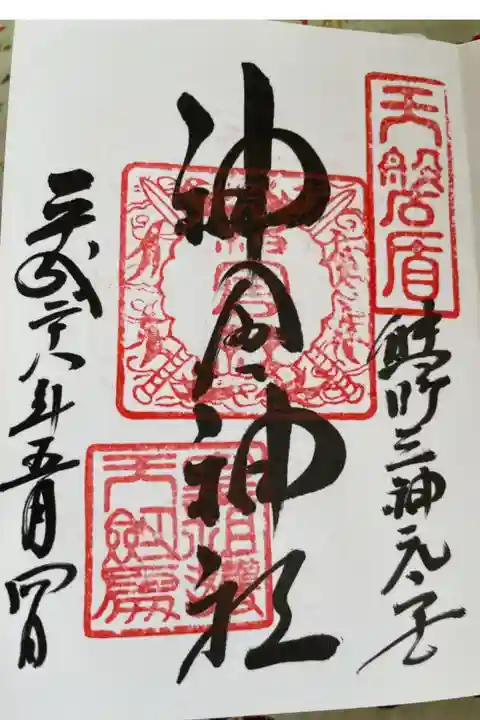 天磐盾
熊野三神元宮
神倉神社
平成二十八年五月四日